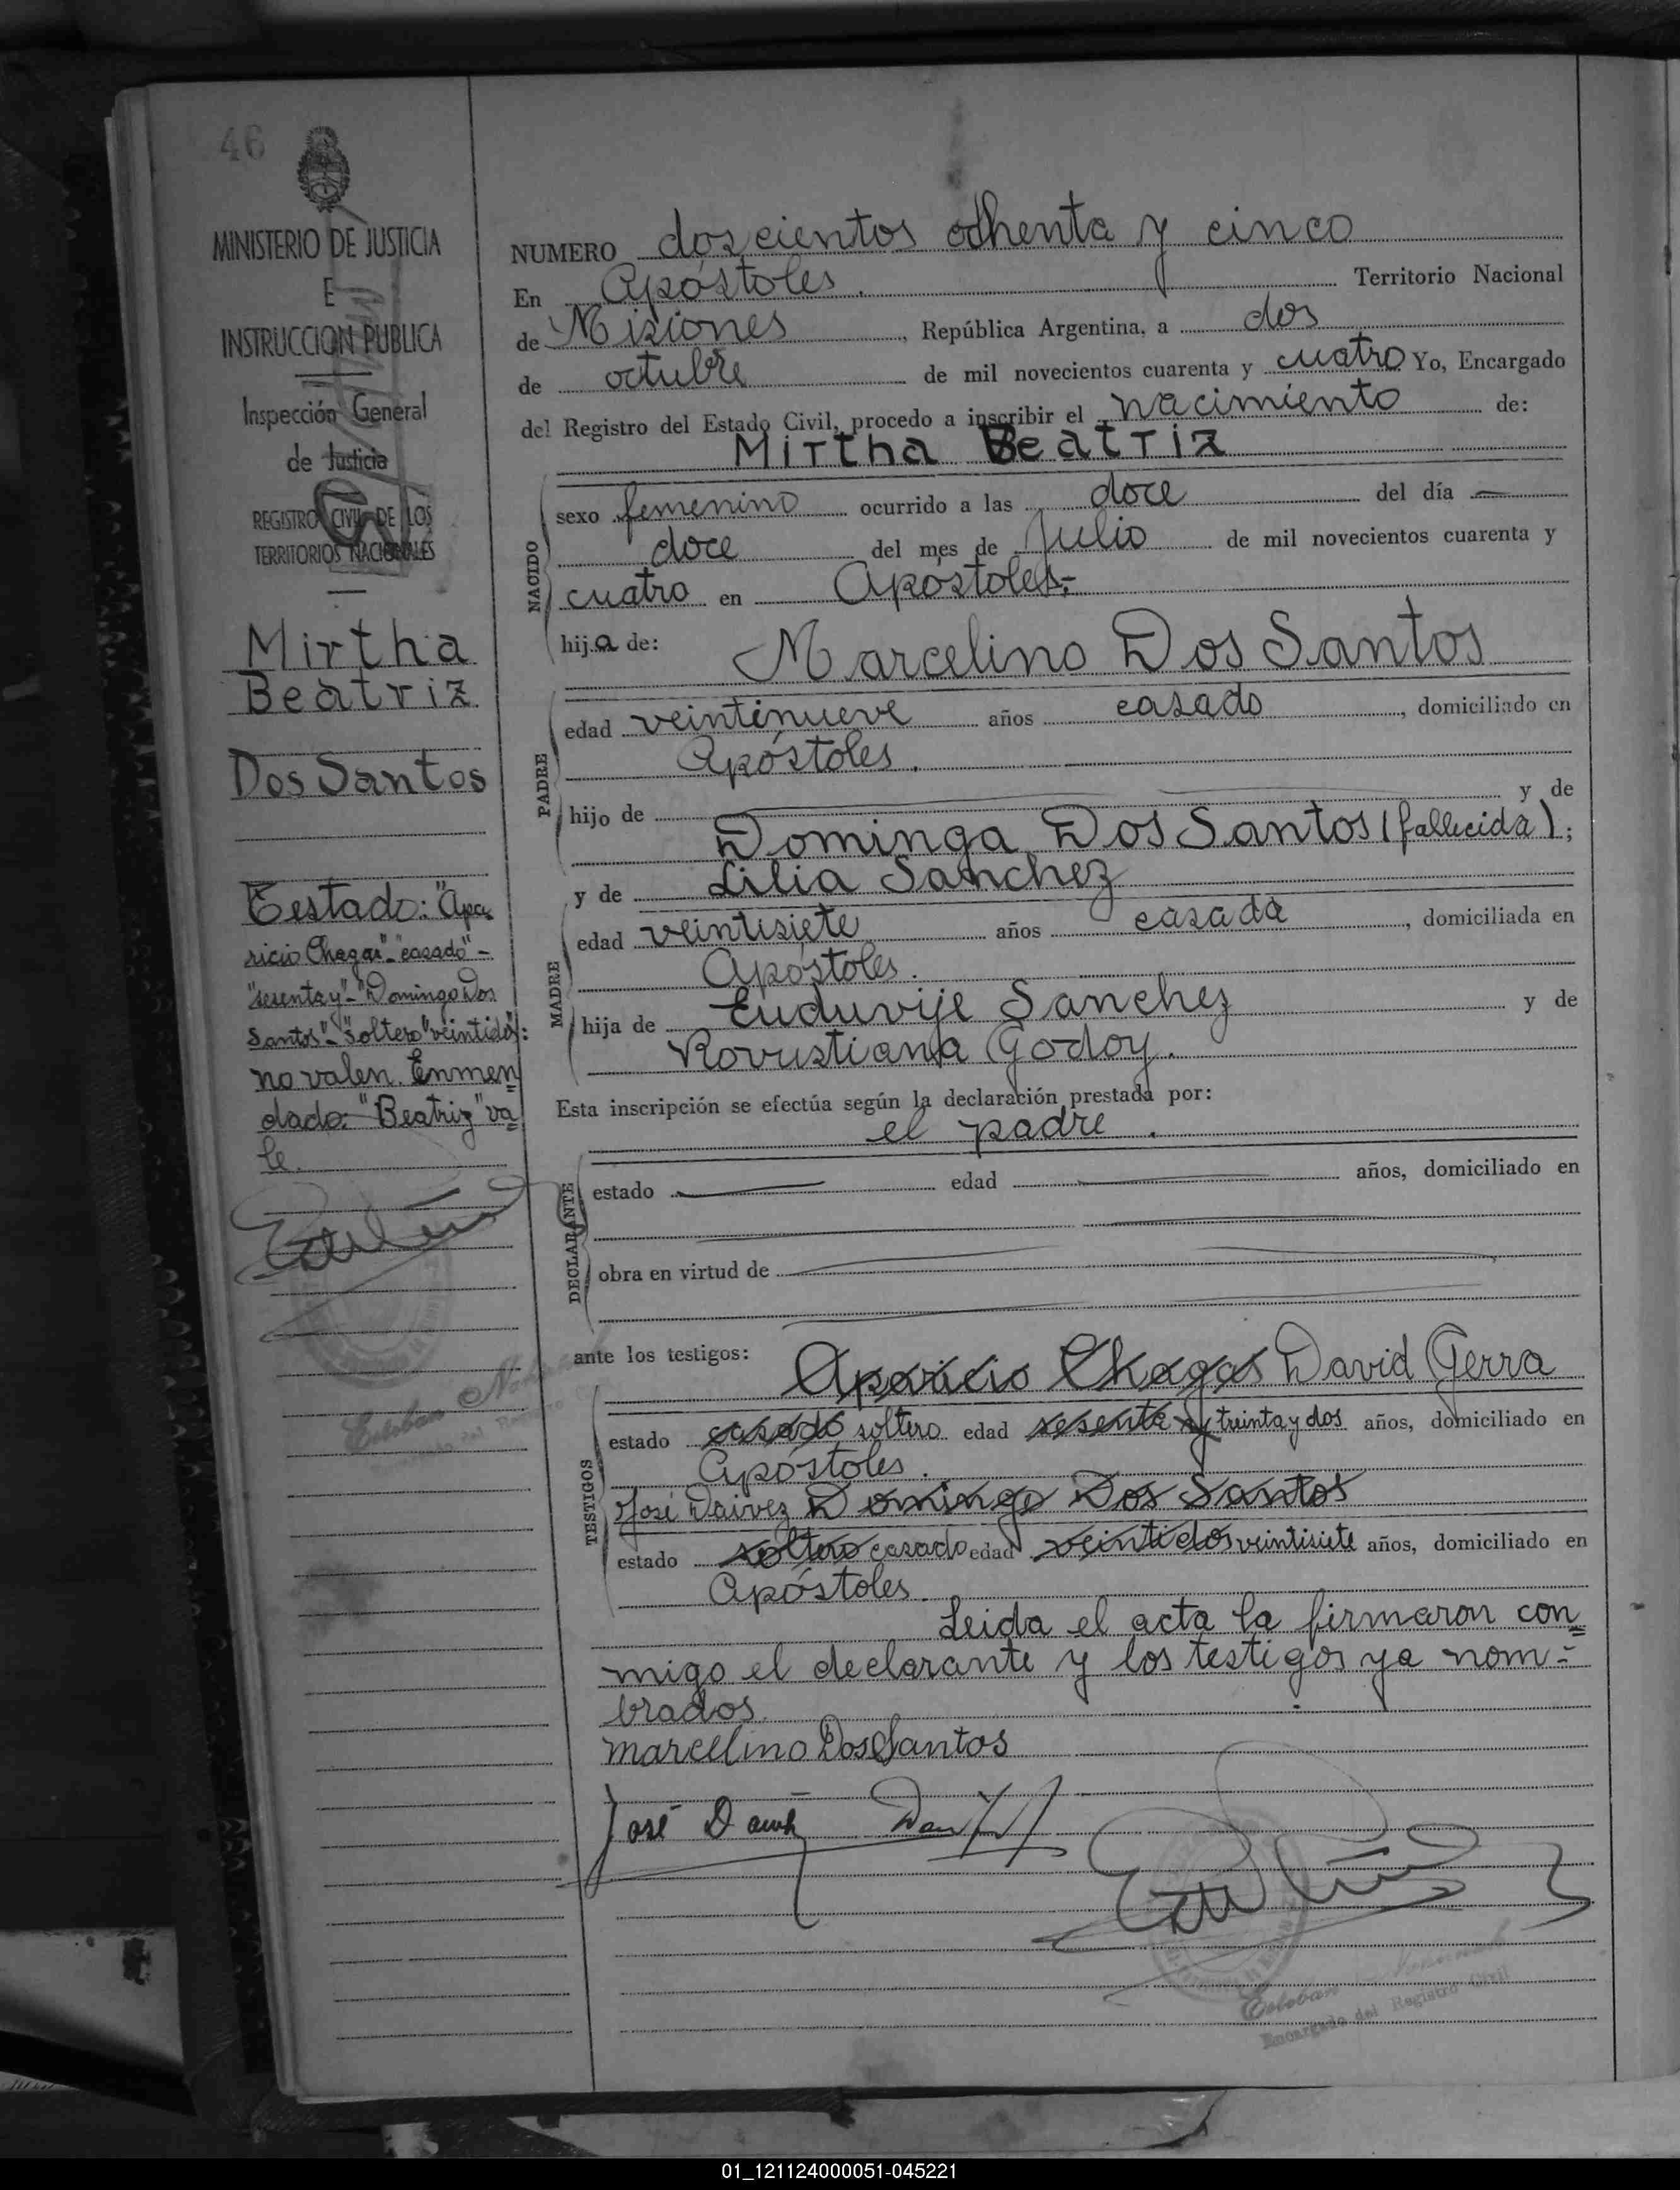 46
MINISTERIO DE JUSTICIA
E
INSTRUCCION PUBLICA
Inspección General
de Justicia
REGISTRO CIVIL DE LOS
TERRITORIOS NACIONALES
Mirtha
Beatriz
Dos Santos
Testado: "Apa
ricio Chagas"-"casado"-
"sesenta y"-"Domingo Dos
Santos"-"soltero" "veintidos":
no valen. Enmen
dado: "Beatriz" va
le.
NUMERO doscientos ochenta y cinco
En Apóstoles. Territorio Nacional
de Misiones, República Argentina, a dos
de octubre de mil novecientos cuarenta y cuatro Yo, Encargado
del Registro del Estado Civil, procedo a inscribir el nacimiento de:
Mirtha Beatriz
NACIDO
sexo femenino ocurrido a las doce del día —
doce del mes de Julio de mil novecientos cuarenta y
cuatro en Apóstoles;-
hija de: Marcelino Dos Santos
PADRE
edad veintinueve años casado, domiciliado en
Apóstoles.
hijo de y de
Dominga Dos Santos (fallecida);
y de Lilia Sanchez
MADRE
edad veintisiete años casada, domiciliada en
Apóstoles.
hija de Euduvije Sanchez y de
Rovustiana Godoy.
Esta inscripción se efectúa según la declaración prestada por:
el padre.
DECLARANTE
estado edad años, domiciliado en
obra en virtud de
ante los testigos: Aparicio Chagas David Gerra
TESTIGOS
estado casado soltero edad sesenta y treinta y dos años, domiciliado en
Apóstoles.
José Daivez Domingo Dos Santos
estado soltero casado edad veintidos veintisiete años, domiciliado en
Apóstoles.
Leida el acta la firmaron con
migo el declarante y los testigos ya nom-
brados.
Marcelino Dos Santos
José
Esteban
Encargado del Registro Civil
01_121124000051-045221